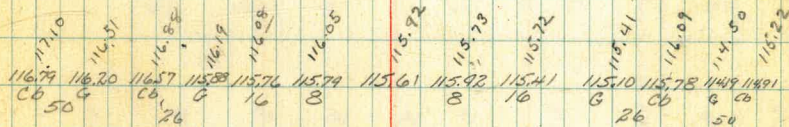 117.10 116.51 116.88 116.19 116.08 116.05 115.92 115.73 115.72 115.41 116.09 114.50 115.22
116.79 116.20 116.57 115.88 115.76 115.79 115.61 115.92 115.41 115.10 115.78 114.19 114.91
Cb G Cb G 16 8 8 16 G Cb G Cb
50 26 26 50